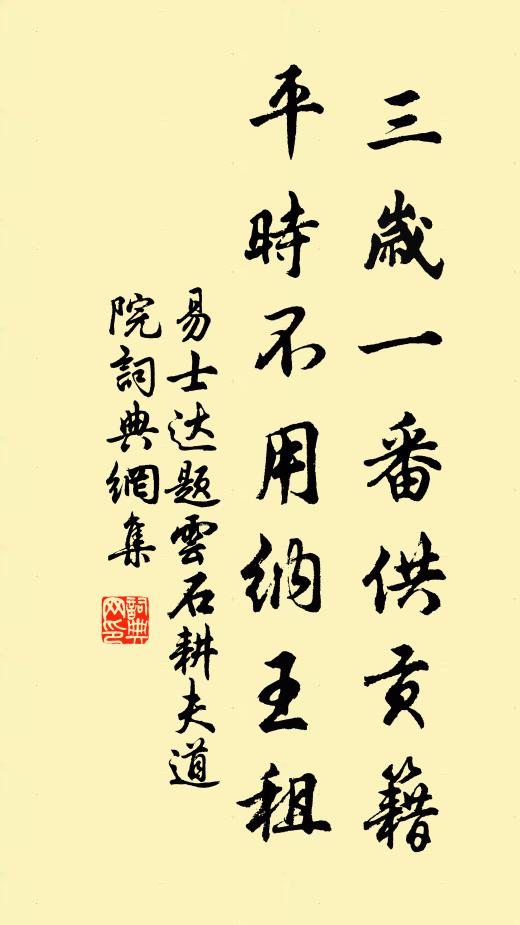 三歲一番供貢籍
平時不用納王租
易士达題雲石耕夫道
院詞典網集
詞典网印